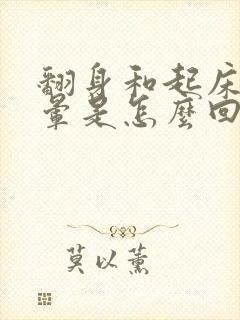 翻身和起床
暈是怎麼回
莫以薰